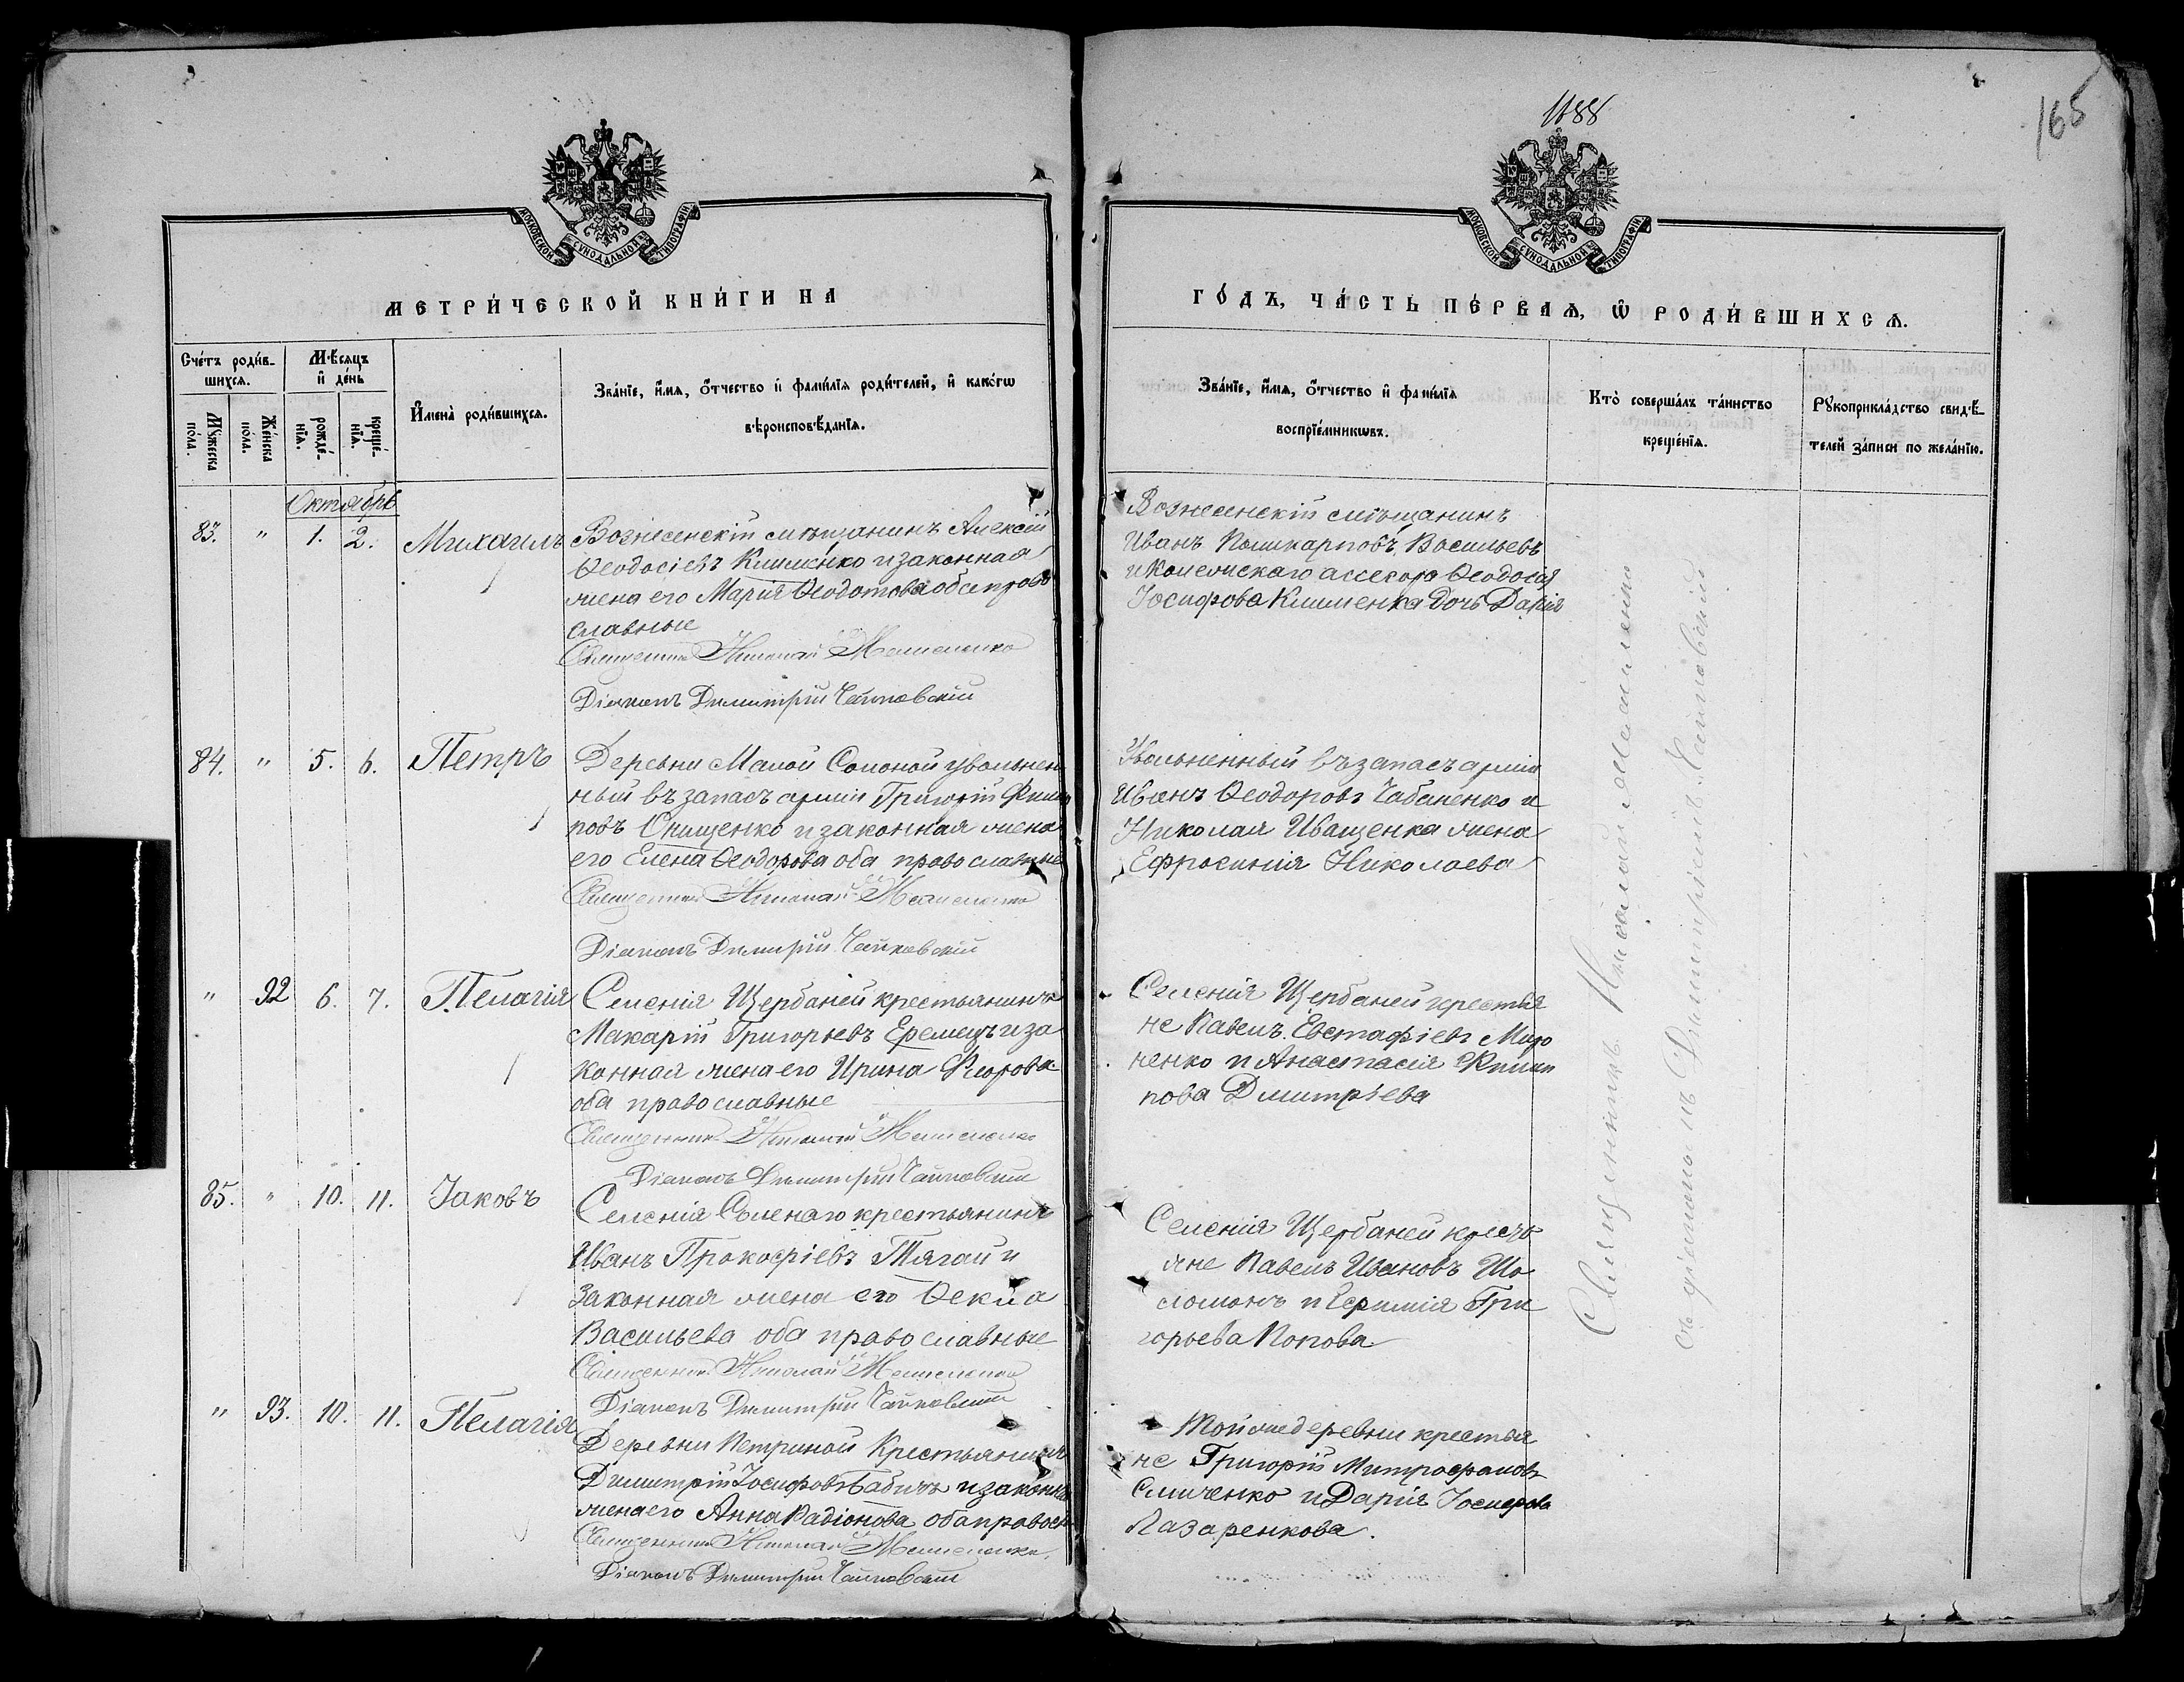 1188
165
МОСКОВСКОЙ СѴНОДАЛЬНОЙ ТИПОГРАФІИ
МОСКОВСКОЙ СѴНОДАЛЬНОЙ ТИПОГРАФІИ
МЕТРИ́ЧЕСКОЙ КНИ́ГИ НА
ГО́ДЪ, ЧА́СТЬ ПЕ́РВАѦ, Ѽ РОДИ́ВШИХСѦ.
Сче́тъ роди́в-
шихсѧ.
Мꙋ́жеска
по́ла.
Же́нска
по́ла.
Мѣ́сѧцъ
и҆ де́нь
рожде́-
нїѧ.
креще́-
нїѧ.
И҆мена̀ роди́вшихсѧ.
Зва́нїе, и҆́мѧ, ѻ҆́тчество и҆ фами́лїѧ роди́телей, и҆ како́гѡ
вѣроисповѣ́данїѧ.
Зва́нїе, и҆́мѧ, ѻ҆́тчество и҆ фами́лїѧ
воспрїе́мникѡвъ.
Кто̀ соверша́лъ та́инство
креще́нїѧ.
Рꙋкоприкла́дство свидѣ́-
телей за́писи по жела́нїю.
Октябрь
83. " 1. 2. Михаилъ
Вознесенскій мѣщанинъ Алексѣй
Ѳеодосіевъ Клименко и законная
жена его Марія Ѳеодотова оба право
славные
Священникъ Николай
Діаконъ Димитрій Чайковскій
Вознесенскій мѣщанинъ
Иванъ Поликарповъ Васильевъ
и Колежскаго ассесора Ѳеодосія
Іосифова Клименка дочь Дарія
84. " 5. 6. Петръ
Деревни Малой Солоной уволнен
ный въ запасъ арміи Григорій Филип
повъ Онищенко и законная жена
его Елена Ѳеодорова оба православные
Священникъ Николай
Діаконъ Димитрій Чайковскій
Увольненный въ запасъ арміи
Иванъ Ѳеодоровъ Чабаненко и
Николая Иващенка жена
Ефросинія Николаева
" 92 6. 7. Пелагія
Селенія Щербаней крестьянинъ
Макарій Григорьевъ Еремецъ и за
конная жена его Ирина Флорова
оба православные
Священникъ Николай
Діаконъ Димитрій Чайковскій
Селенія Щербаней крестья
не Павелъ Евстафіевъ Миро
ненко и Анастасія Филип
пова Дмитріева
85. " 10. 11. Іаковъ
Селенія Соленаго крестьянинъ
Иванъ Прокофіевъ Тягай и
законная жена его Ѳекла
Васильева оба православные
Священникъ Николай
Діаконъ Димитрій Чайковскій
Селенія Щербаней кресть
яне Павелъ Ивановъ Шо
ломонъ и Герьмія Гри
горьева Попова
" 93. 10. 11. Пелагія
Деревни Петриной крестьянинъ
Димитрій Іосифовъ Бабичъ и законная
жена его Анна Радіонова оба правосл
Священникъ Николай
Діаконъ Димитрій Чайковскій
Той же деревни крестья
не Григорій Митрофановъ
Сличенко и Дарія Іосифова
Лазаренкова.
Священникъ Николай
съ діакономъ Димитріемъ Чайковскій